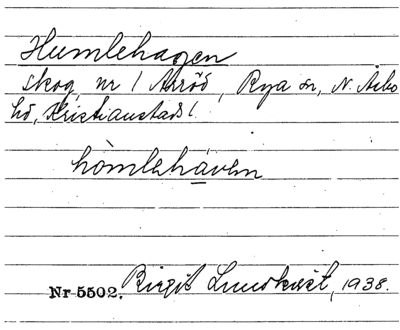 Humlehagen
skog, nr 1 Arröd, Rya sn, N. Åsbo
hd, Kristianstads l.
hòmlehávem
Nr 5502. Birgit Lundkvist, 1938.